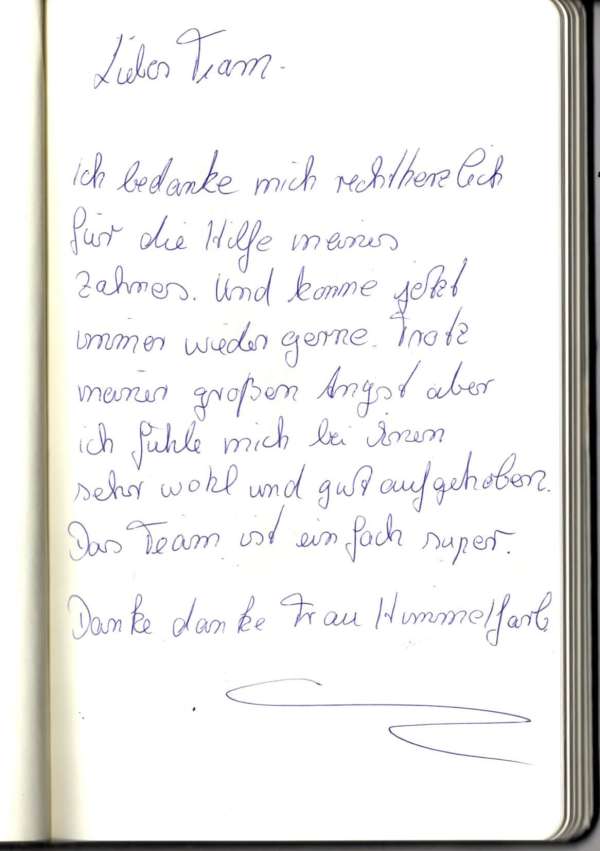 Liebes Team.
Ich bedanke mich rechtherzlich
für die Hilfe meines
Zahnes. Und komme jetzt
immer wieder gerne. Trotz
meiner großen Angst aber
ich fühle mich bei Ihnen
sehr wohl und gut aufgehoben.
Das Team ist einfach super.
Danke danke Frau Himmelfarb